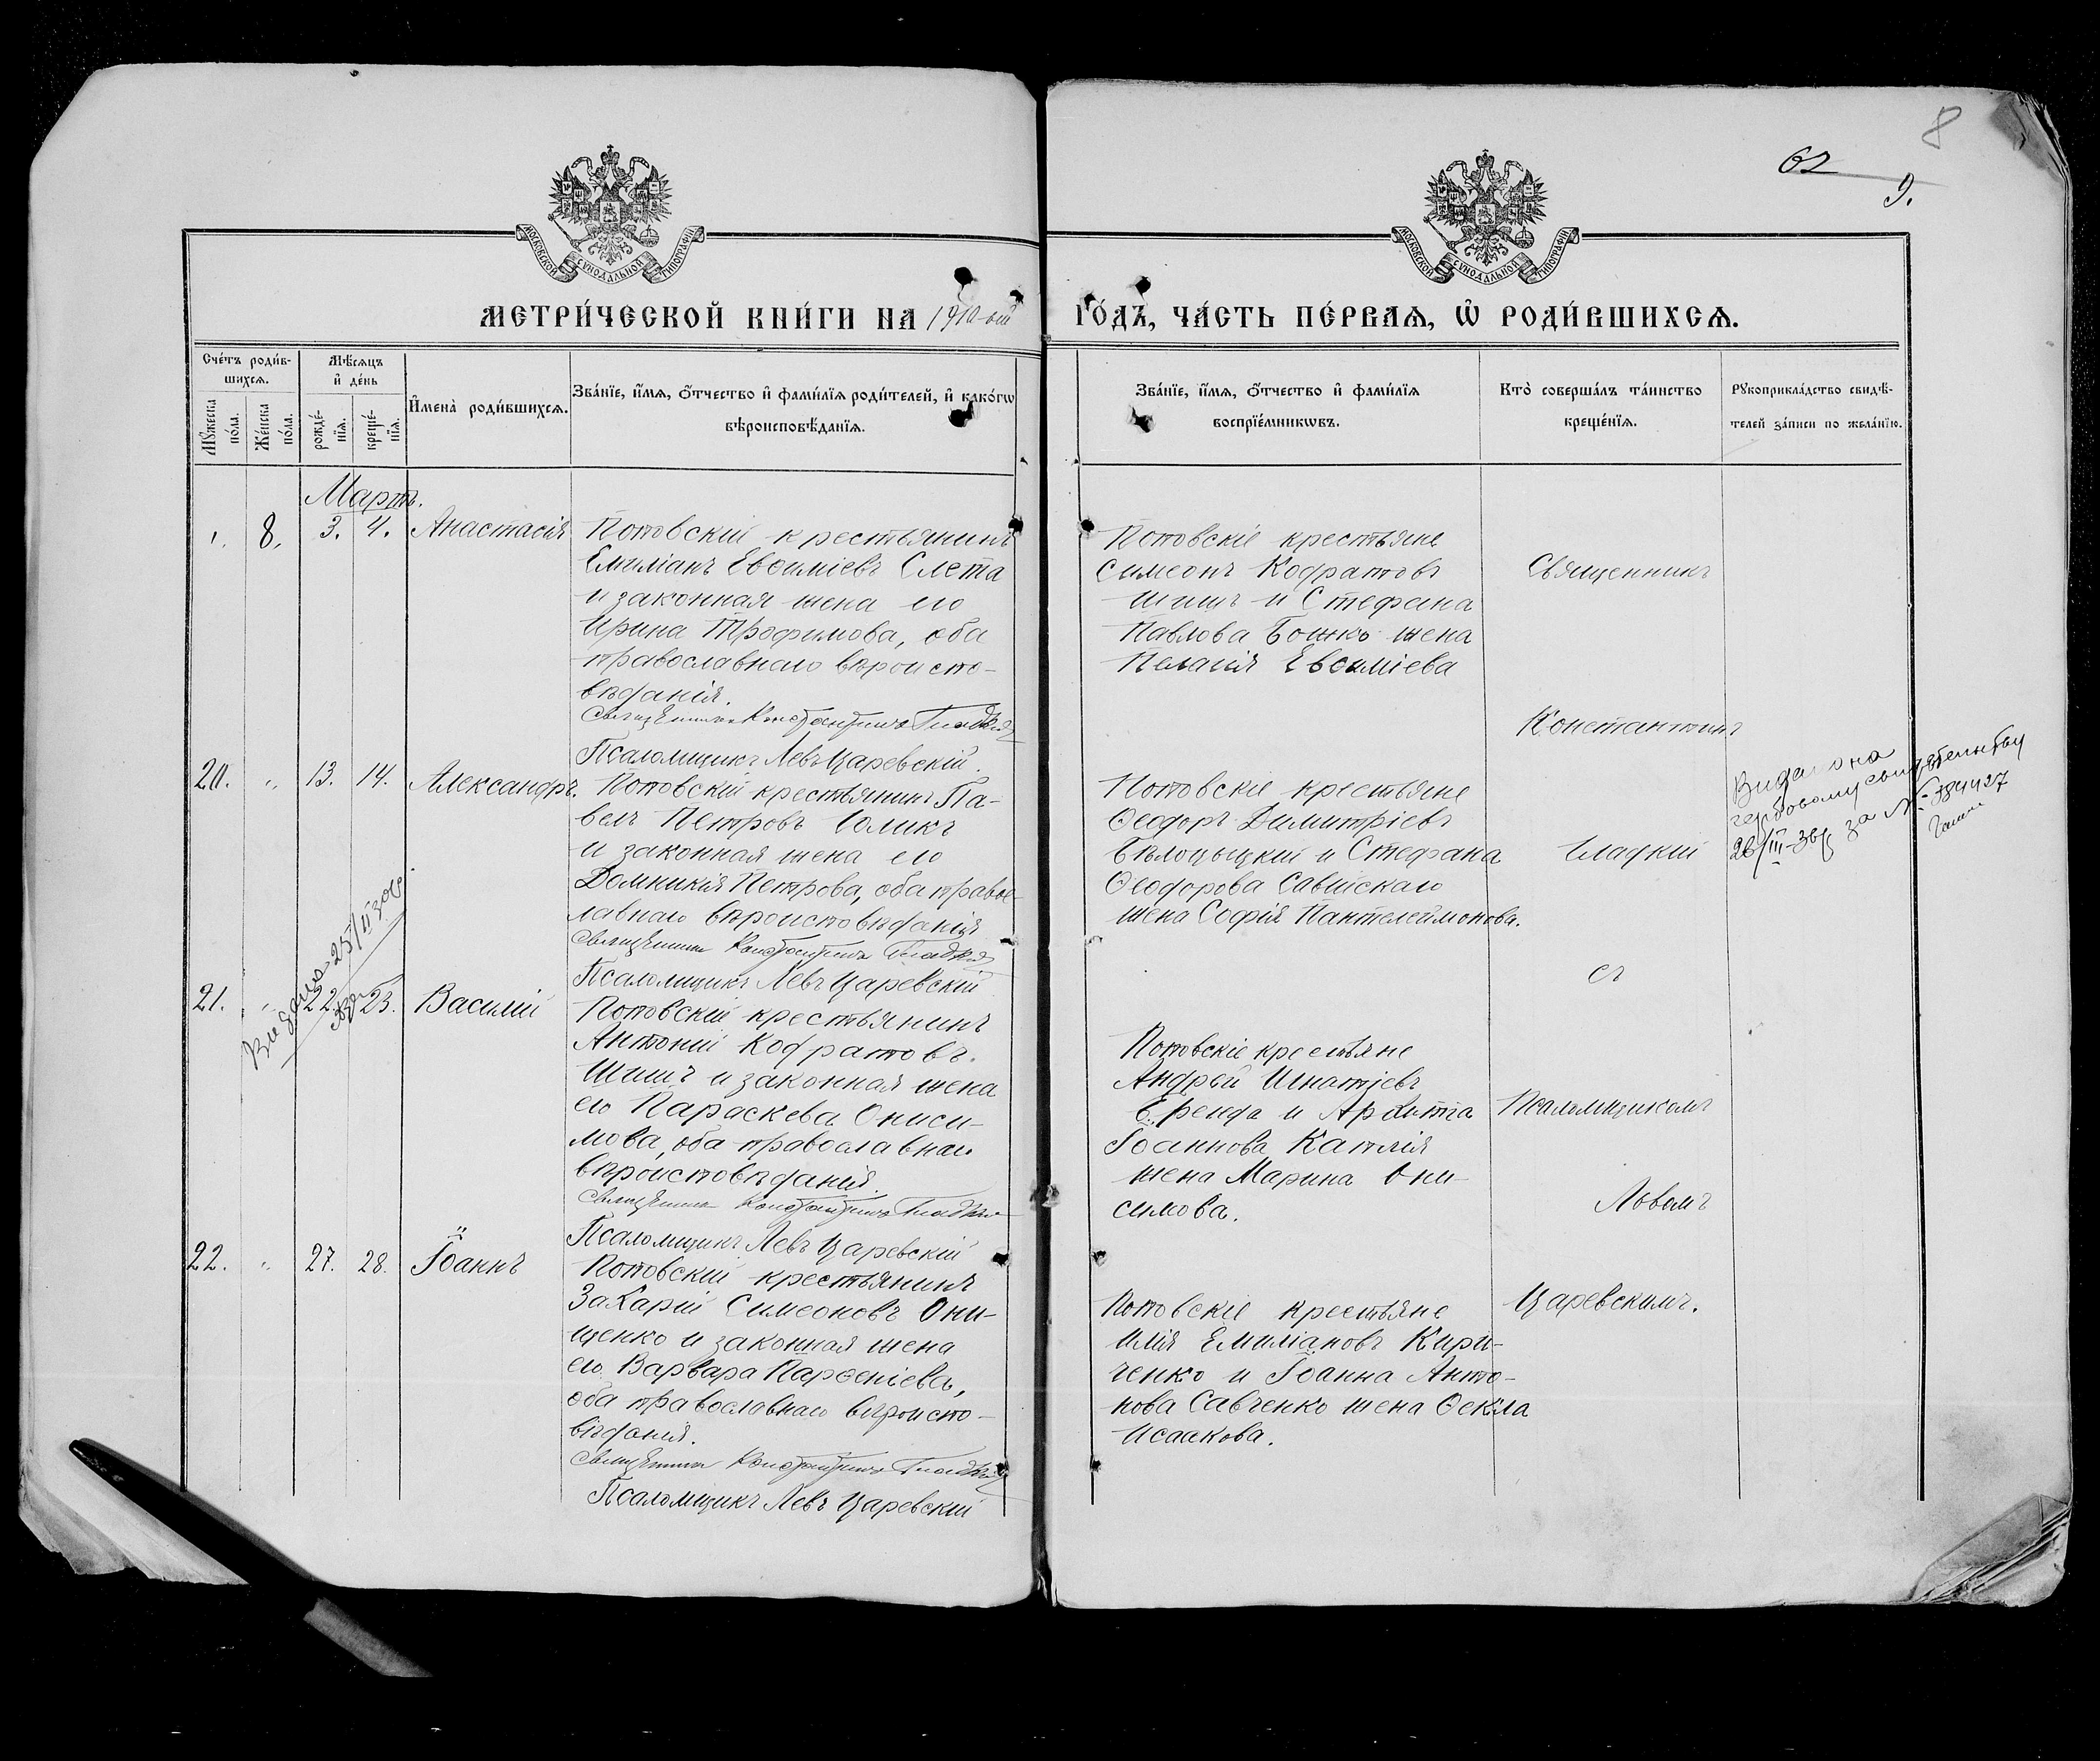 8
62
9.
МОСКОВСКОЙ СѴНОДАЛЬНОЙ ТИПОГРАФІИ
МОСКОВСКОЙ СѴНОДАЛЬНОЙ ТИПОГРАФІИ
МЕТРИ́ЧЕСКОЙ КНИ́ГИ НА 1910-ой ГО́ДЪ, ЧА́СТЬ ПЕ́РВАѦ, Ѡ҆ РОДИ́ВШИХСѦ.
Сче́тъ роди́в-
шихсѧ.
Мꙋ́жеска
по́ла.
Же́нска
по́ла.
Мѣ́сѧцъ
и҆ де́нь
рожде́-
нїѧ.
креще́-
нїѧ.
И҆мена̀ роди́вшихсѧ.
Зва́нїе, и҆́мѧ, ѻ҆́тчество и҆ фами́лїѧ роди́телей, и҆ како́гѡ
вѣроисповѣ́данїѧ.
Зва́нїе, и҆́мѧ, ѻ҆́тчество и҆ фами́лїѧ
воспрїе́мникѡвъ.
Кто̀ соверша́лъ та́инство
креще́нїѧ.
Рꙋкоприкла́дство свидѣ́-
телей за́писи по жела́нїю.
Мартъ.
8. 3. 4. Анастасія
Поповскій крестьянинъ
Емиліанъ Евѳиміевъ Слета
и законная жена его
Ирина Трофимова, оба
православнаго вѣроиспо-
вѣданія.
Священникъ Константинъ Гладкій
Псаломщикъ Левъ Царевскій.
Поповскіе крестьяне
Симеонъ Кодратовъ
Шишъ и Стефана
Павлова Бошко жена
Пелагія Евѳиміева
Священникъ
Константинъ
Гладкій
съ
Псаломщикомъ
Львомъ
Царевскимъ.
20. " 13. 14. Александръ.
Поповскій крестьянинъ Па-
велъ Петровъ Голикъ
и законная жена его
Домникія Петрова, оба правос-
лавнаго вѣроисповѣданія
Священникъ Константинъ Гладкій
Псаломщикъ Левъ Царевскій
Поповскіе крестьяне
Ѳеодоръ Димитріевъ
Бѣлоцыцкій и Стефана
Ѳеодорова Савійскаго
жена Софія Пантелеймонова.
Видано на
гербовому свидѣтельству
26/III-38 за № 384427
21. " 22. 23. Василій
Видано 25/II
Поповскій крестьянинъ
Антоній Кодратовъ
Шишъ и законная жена
его Параскева Ониси-
мова, оба православнаго
вѣроисповѣданія.
Священникъ Константинъ Гладкій
Псаломщикъ Левъ Царевскій
Поповскіе крестьяне
Андрей Игнатіевъ
и Архипа
Іоаннова Каплія
жена Марина Они-
симова.
22. " 27. 28. Іоаннъ
Поповскій крестьянинъ
Захарій Симеоновъ Они-
щенко и законная жена
его Варвара Парѳеніева,
оба православнаго вѣроиспо-
вѣданія.
Священникъ Константинъ Гладкій
Псаломщикъ Левъ Царевскій
Поповскіе крестьяне
Илія Емиліановъ Кири-
ченко и Іоанна Анто-
нова Савченко жена Ѳекла
Исаакова.